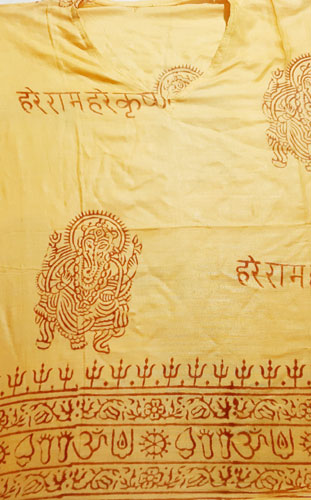 हरे राम हरे कृष्ण
हरे राम
ॐ
ॐ